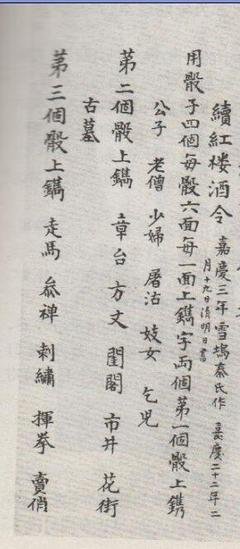 續紅楼酒令 嘉慶三年雪塢秦氏作 嘉慶二十二年二月十九日清明日書
用骰子四個每骰六面每一面上鐫字両個第一個骰上鐫
公子 老僧 少婦 屠沽 妓女 乞児
第二個骰上鐫 章台 方文 閨閣 市井 花街
古墓
第三個骰上鐫 走馬 叅禅 刺繡 揮拳 賣俏